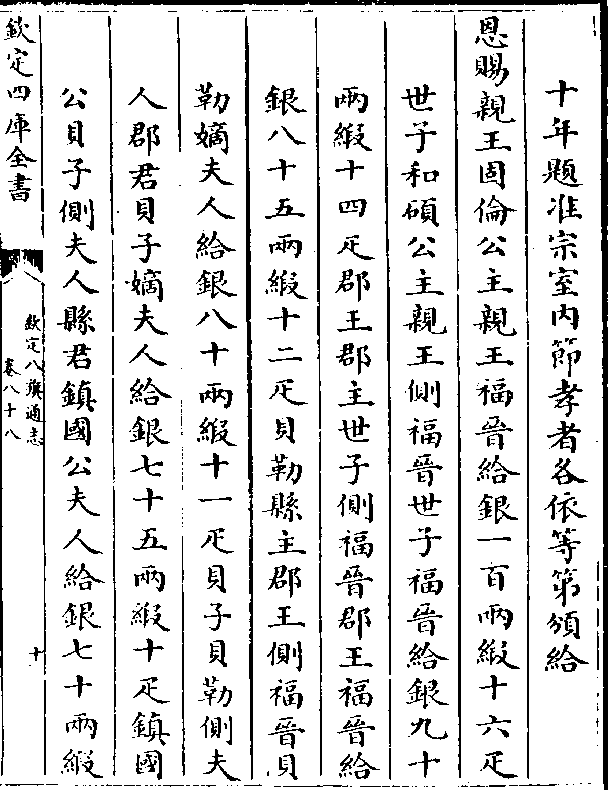 十年題准宗室内節孝者各依等第頒給
恩賜親王固倫公主親王福晉給銀一百兩緞十六疋
世子和碩公主親王側福晉世子福晉給銀九十
兩緞十四疋郡王郡主世子側福晉郡王福晉給
銀八十五兩緞十二疋貝勒縣主郡王側福晉貝
勒嫡夫人給銀八十兩緞十一疋貝子貝勒側夫
人郡君貝子嫡夫人給銀七十五兩緞十疋鎮國
公貝子側夫人縣君鎮國公夫人給銀七十兩緞
欽定四庫全書
欽定八旗通志
卷八十八
十